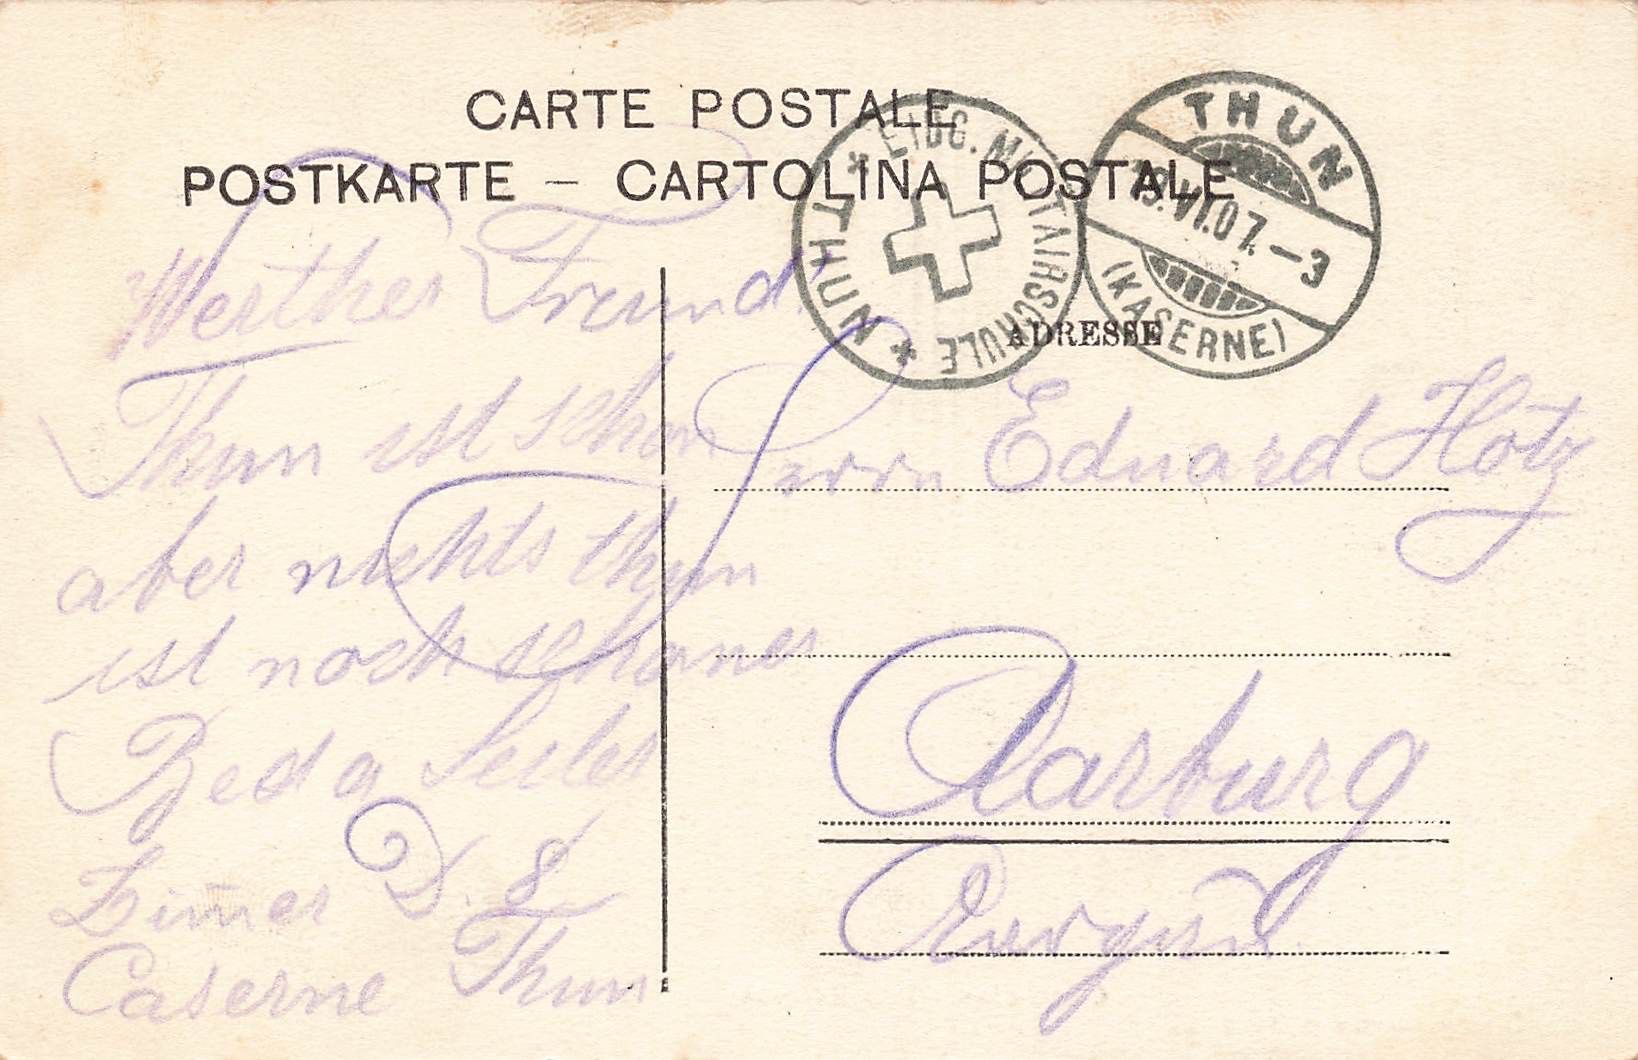 CARTE POSTALE
POSTKARTE – CARTOLINA POSTALE
* EIDG. MILITAIRSCHULE * THUN
THUN
19.VI.07.–3
(KASERNE)
ADRESSE
Werther Freund!
Thun ist schön
aber nichts thun
ist noch schöner
Beda Seiler
Zim̅er D. 8
Caserne Thun
Herrn Eduard Hotz
Aarburg
Aargau.